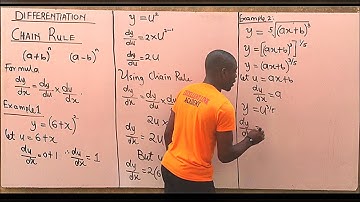 DIFFERENTIATION
CHAIN RULE
(a+b)ⁿ (a-b)ⁿ
Formula
dy/dx = dy/du × du/dx
Example 1
y = (6+x)²
let u = 6+x
dy/dx = 0+1 ∴ du/dx = 1
y = U²
dy/du = 2×U²⁻¹
dy/du = 2U
Using Chain Rule
dy/dx = dy/du × du/dx
2U ×
dy/dx = 2U
But u
dy/dx = 2(6
Example 2:
y = ⁵√(ax+b)³
y = [(ax+b)³]^1/5
y = (ax+b)^3/5
let u = ax+b
du/dx = a
y = U^3/5
dy